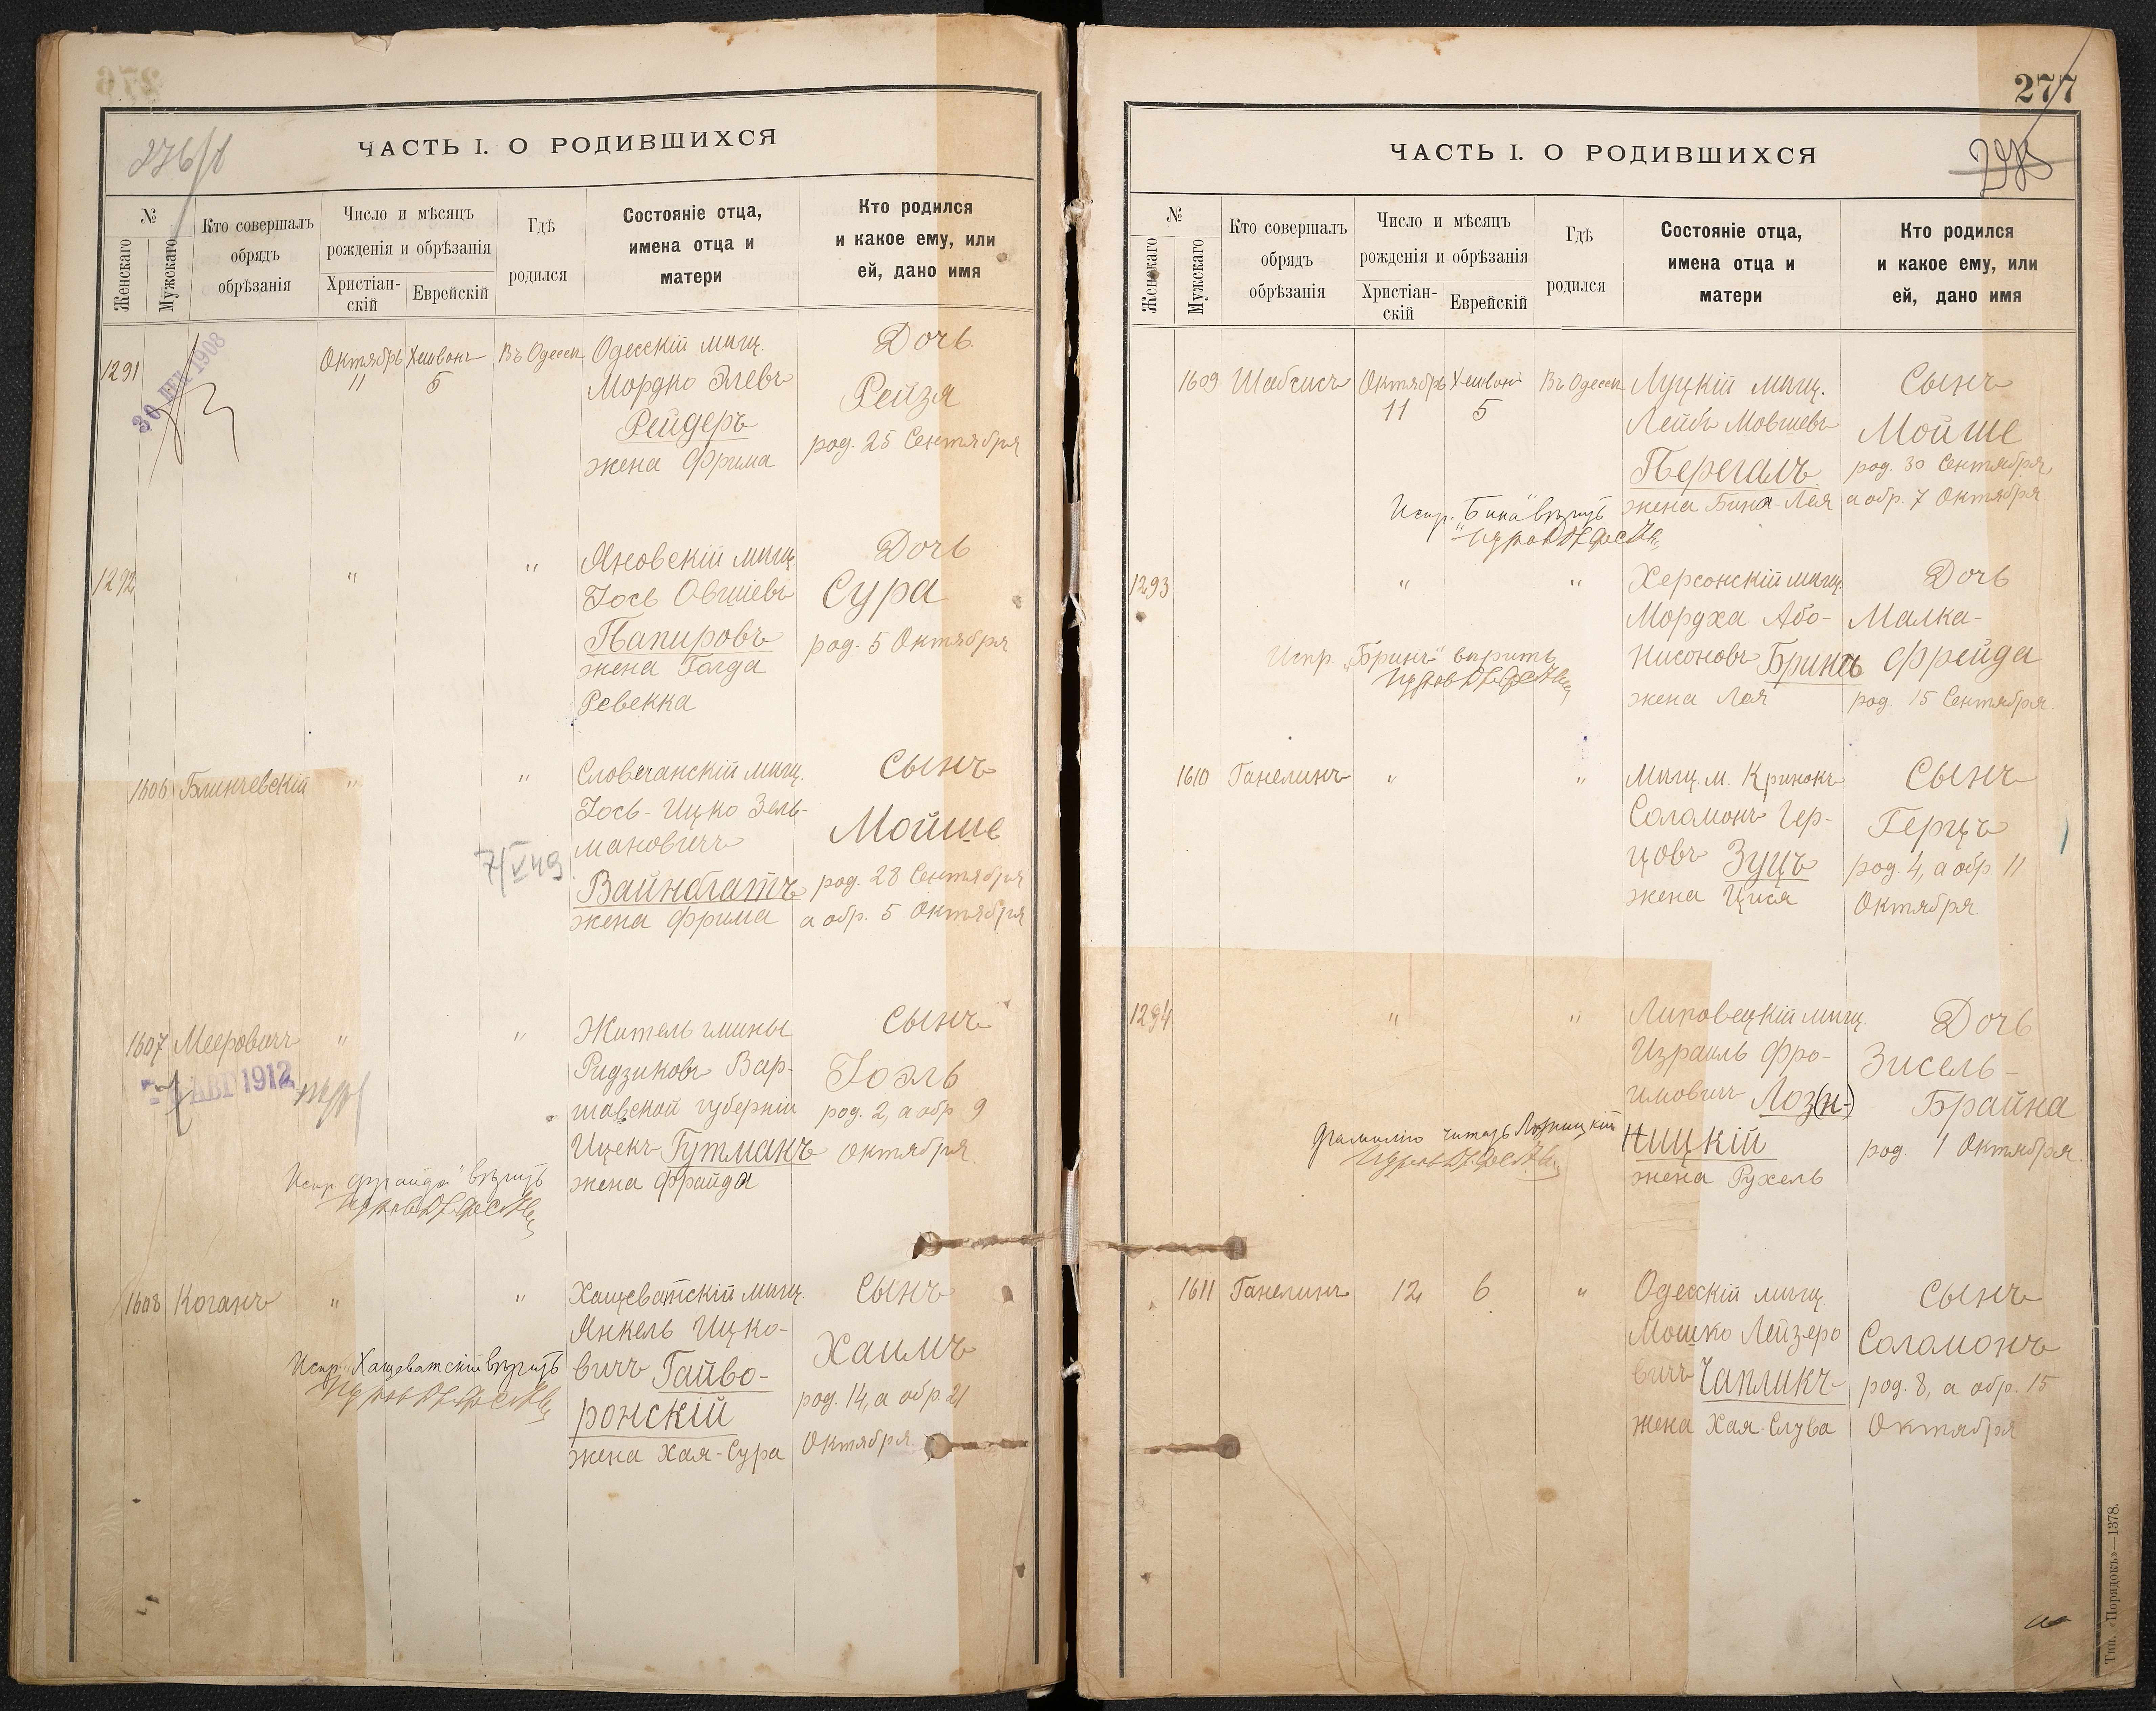 276/1
ЧАСТЬ I. О РОДИВШИХСЯ
№
Женскаго
Мужскаго
Кто совершалъ
обрядъ
обрѣзанія
Число и мѣсяцъ
рожденія и обрѣзанія
Христіан-
скій
Еврейскій
Гдѣ
родился
Состояніе отца,
имена отца и
матери
Кто родился
и какое ему, или
ей, дано имя
1291
30 ДЕК 1908
Октябрь
11
Хешвонъ
5
Въ Одессѣ
Одесскій мѣщ.
Мордко Элевъ
Рейдеръ
жена Фрима
Дочь
Рейзя
род. 25 Сентября
1292
"
"
Яновскій мѣщ.
Іось Овшіевъ
Папировъ
жена Голда
Ревекка
Дочь
Сура
род. 5 Октября
1606
Блинчевскій
"
"
7/V 49
Словечанскій мѣщ.
Іось-Ицко Зель-
мановичъ
Вайнблатъ
жена Фрима
Сынъ
Мойше
род. 28 Сентября
а обр. 5 Октября
1607
Мееровичъ
"
"
7 АВГ 1912
Житель гмины
Радзиковъ Вар-
шавской губерніи
Ицекъ Гутманъ
жена Фрайда
Сынъ
Іоэль
род. 2, а обр 9
Октября
Испр. „Фрайда" вѣрить
1608
Коганъ
"
"
Хащеватскій мѣщ.
Янкель Ицко-
вичъ Гайво-
ронскій
жена Хая-Сура
Сынъ
Хаимъ
род. 14, а обр 21
Октября
Испр. Хащеватскій вѣрить
277
ЧАСТЬ I. О РОДИВШИХСЯ
№
Женскаго
Мужскаго
Кто совершалъ
обрядъ
обрѣзанія
Число и мѣсяцъ
рожденія и обрѣзанія
Христіан-
скій
Еврейскій
Гдѣ
родился
Состояніе отца,
имена отца и
матери
Кто родился
и какое ему, или
ей, дано имя
1609
Шабсисъ
Октябрь
11
Хешвонъ
5
Въ Одессѣ
Луцкій мѣщ.
Лейбъ Мовшевъ
Перегалъ
жена Бина-Лея
Сынъ
Мойше
род. 30 Сентября,
а обр. 7 Октября
Испр. „Бина" вѣрить
1293
"
"
Херсонскій мѣщ.
Мордха Або-
Нисоновъ Бринъ
жена Лея
Дочь
Малка-
Фрейда
род. 15 Сентября.
Испр. „Бринъ" вѣрить
1610
Ганелинъ
"
"
Мѣщ. м. Кринокъ
Соломонъ Гер-
цовъ Зуцъ
жена Цися
Сынъ
Герцъ
род. 4, а обр. 11
Октября.
1294
"
"
Липовецкій мѣщ.
Израиль Фро-
имовичъ Лоз(н-)
ницкій
жена Рухель
Дочь
Зисель-
Брайна
род. 1 Октября.
Фамилію читать Лозницкій
1611
Ганелинъ
12
6
"
Одесскій мѣщ.
Мошко Лейзеро
вичъ Чапликъ
жена Хая-Слува
Сынъ
Соломонъ
род. 8, а обр. 15
Октября
Тип. «Порядокъ»—1378.